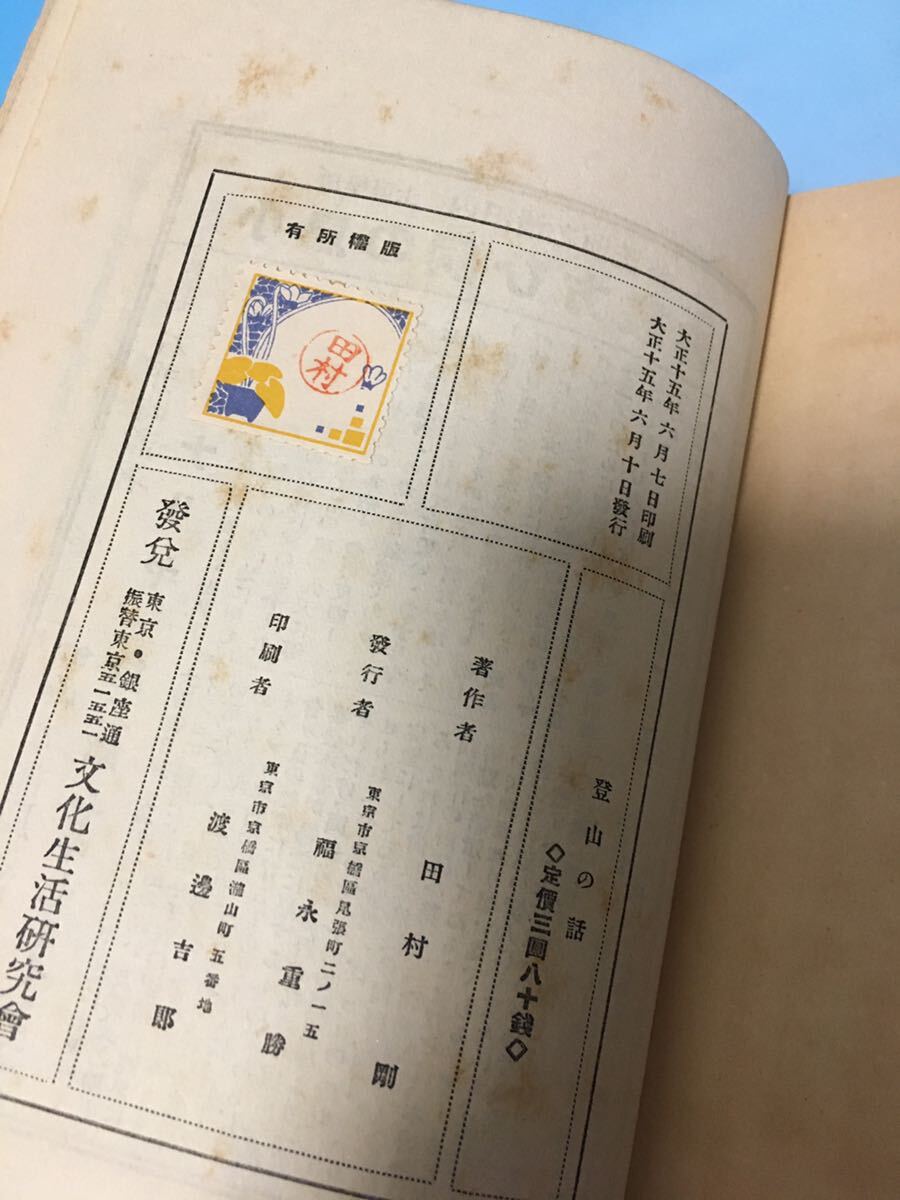 大正十五年六月七日印刷
大正十五年六月十日發行
版權所有
田村
登山の話
◇定價三圓八十錢◇
著作者 田村剛
東京市京橋區尾張町二ノ一五
發行者 福永重勝
東京市京橋區瀧山町五番地
印刷者 渡邊吉郎
發兌 東京・銀座通 文化生活研究會
振替東京五一五五一